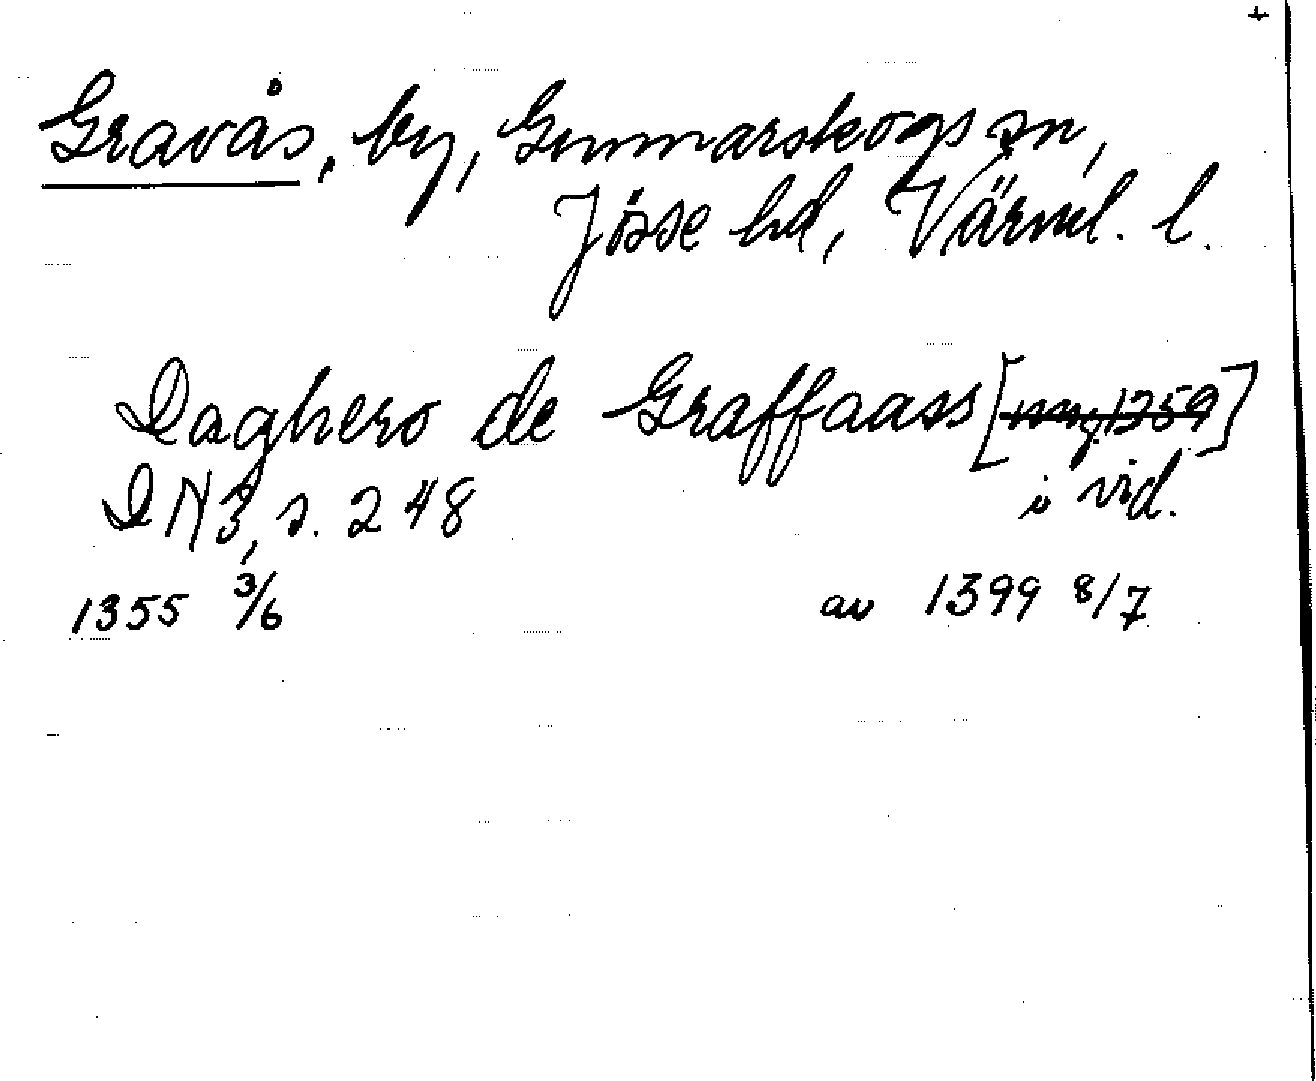 Gravås, by, Gunnarskogs sn,
Jösse hd, Värml. l.
Daghero de Graffaass [1359]
DN3, s. 248 i vid.
1355 3/6 av 1399 8/7